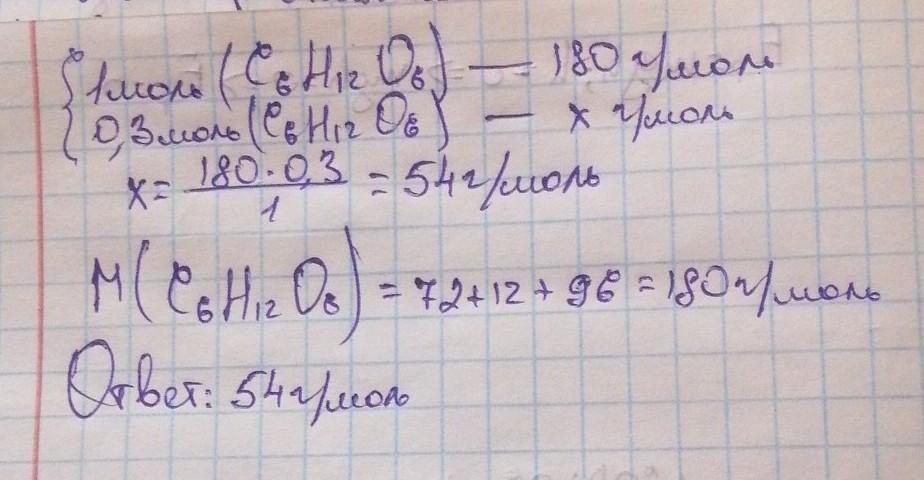 1моль (C₆H₁₂O₆) — 180 г/моль
0,3моль (C₆H₁₂O₆) — x г/моль
x = 180·0,3 / 1 = 54г/моль
M(C₆H₁₂O₆) = 72+12+96 = 180г/моль
Ответ: 54г/моль